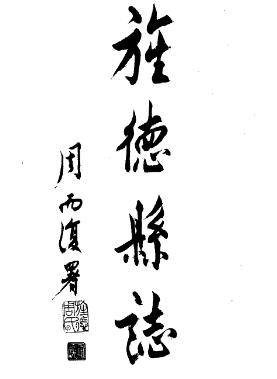 旌德縣誌
周而復署